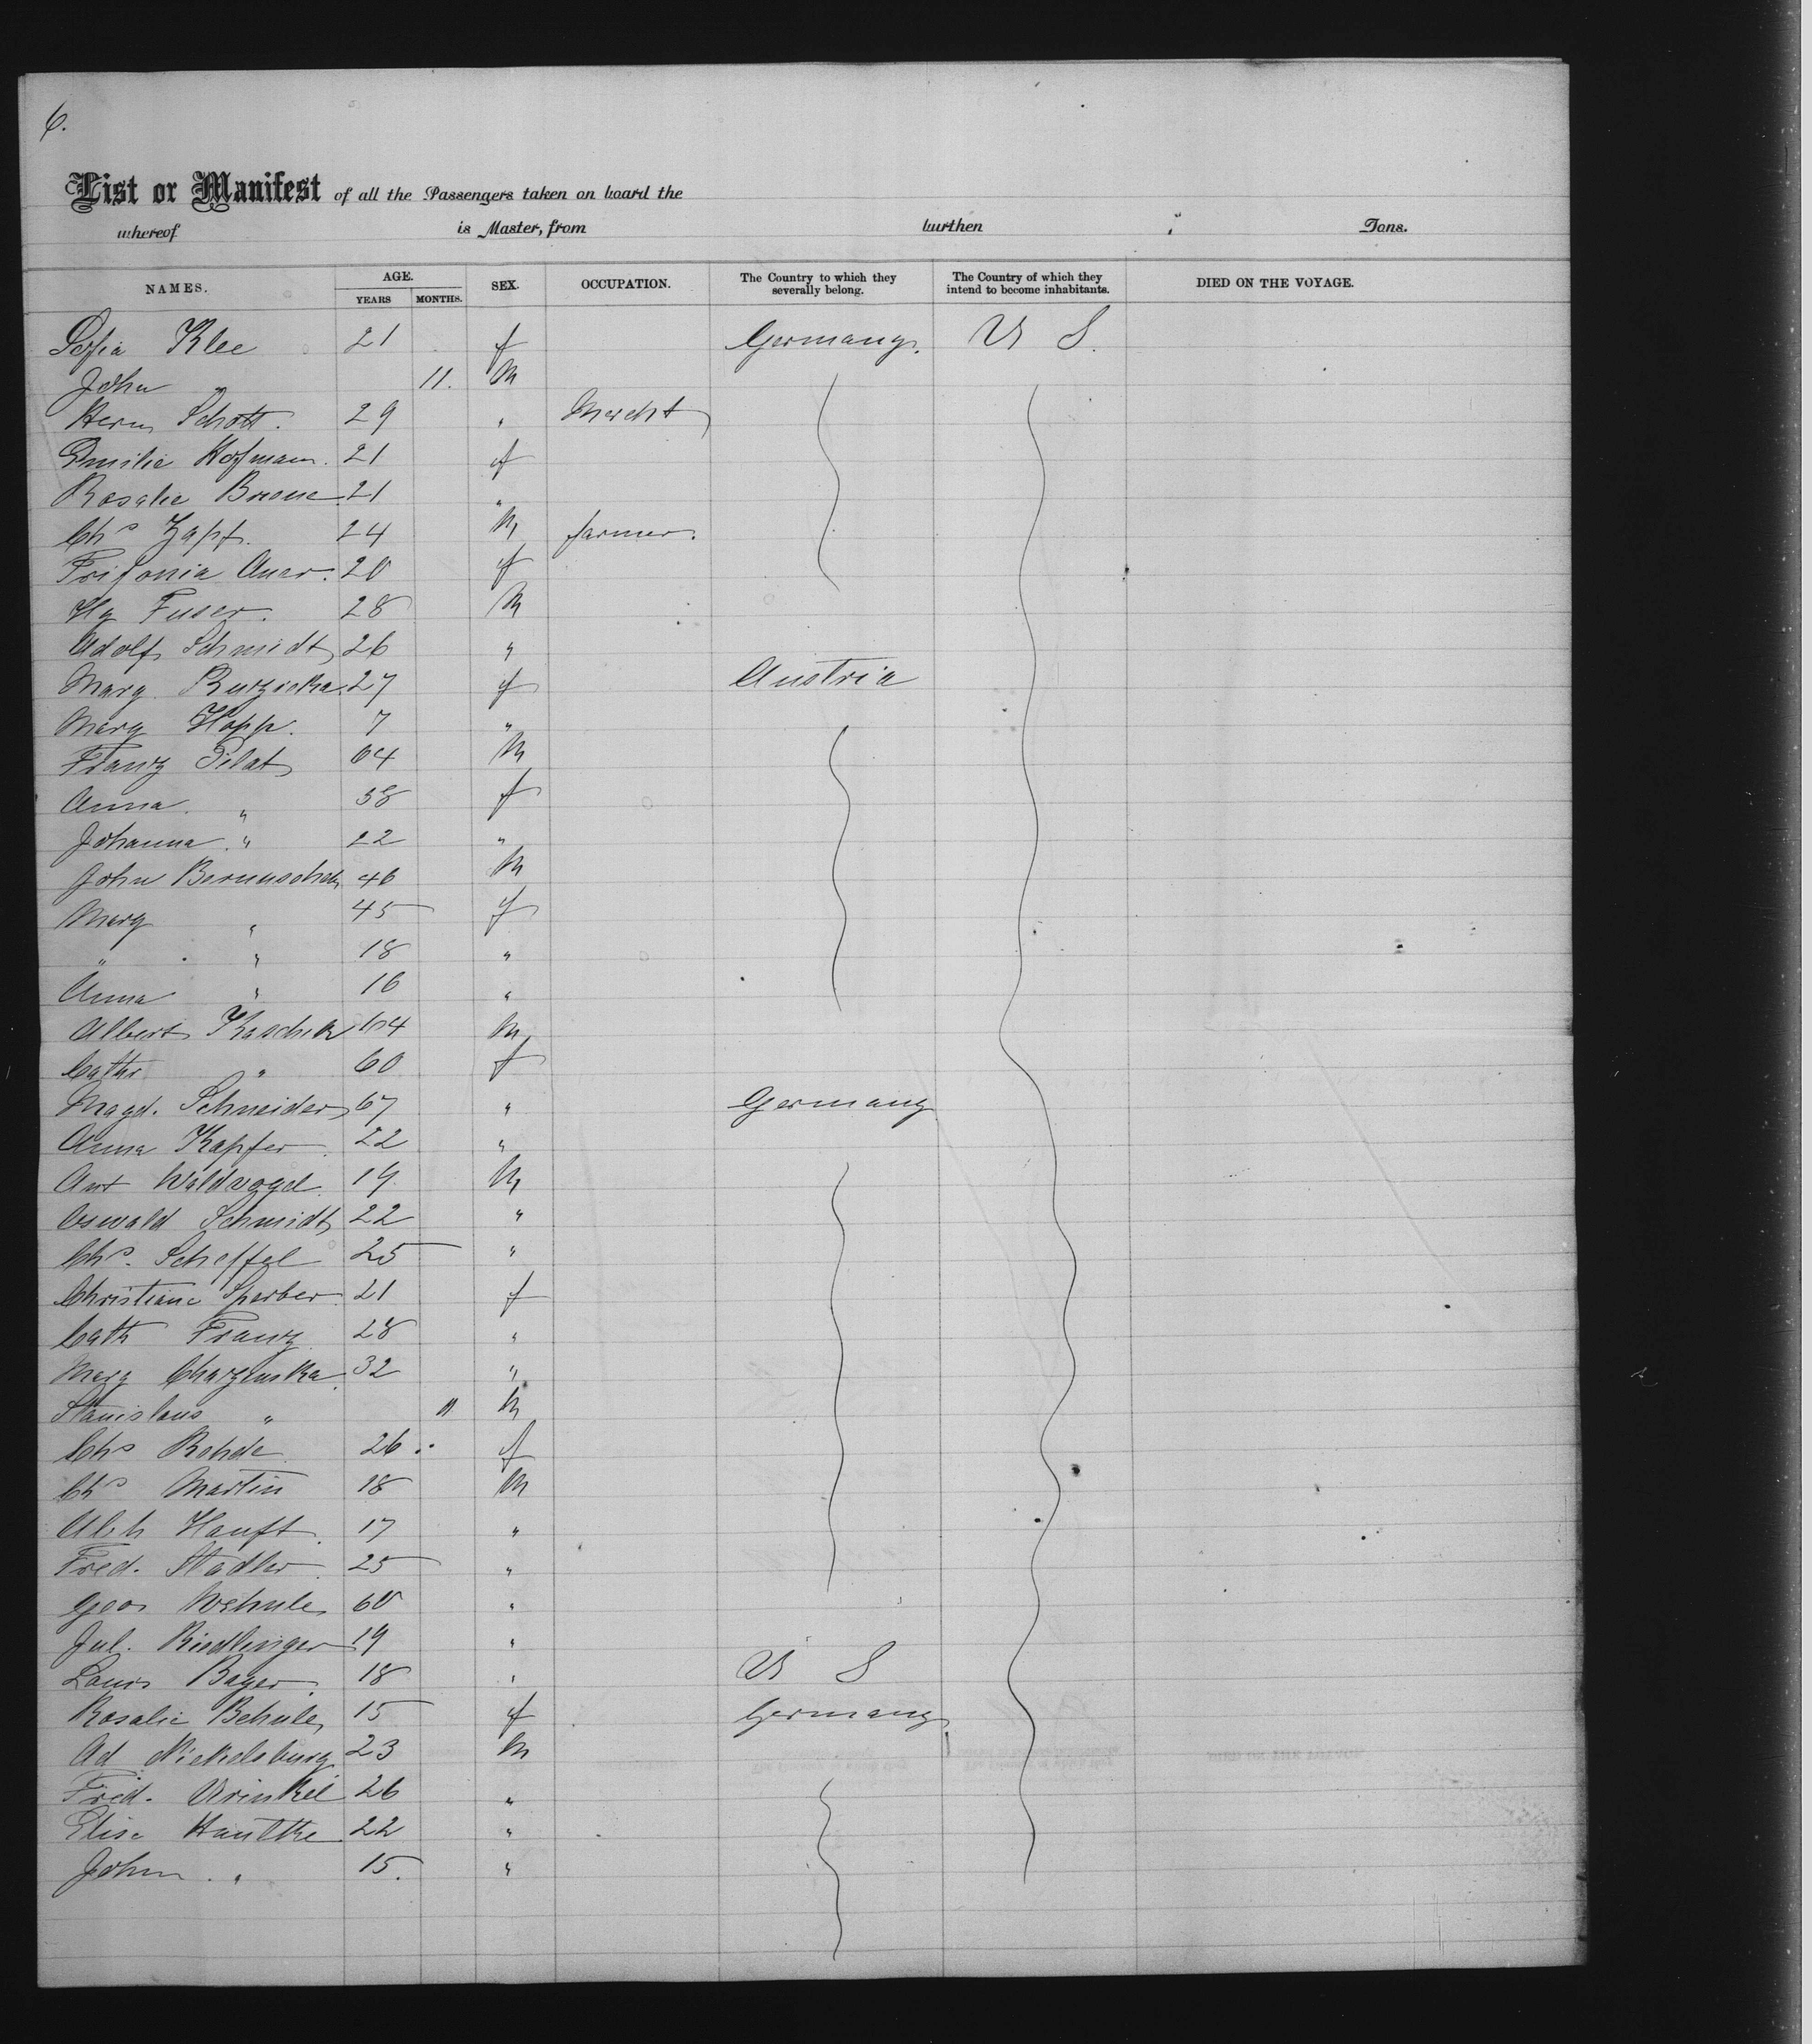 6.
List or Manifest of all the Passengers taken on board the
whereof is Master, from burthen Tons.
NAMES. AGE. YEARS MONTHS. SEX. OCCUPATION. The Country to which they severally belong. The Country of which they intend to become inhabitants. DIED ON THE VOYAGE.
Sofia Klee 21 f Germany. U S.
John " 11. M
Herm Schott. 29 " Mercht
Emilie Hofmann. 21 f
Rosalie 21 "
Chs Zapf. 24 M farmer.
Auer. 20 f
Hy Fuser. 28 M
Adolf Schmidt 26 "
Marg. Ruzicka 27 f Austria
Mary Hopp. 7 "
Franz Pilat 64 M
Anna " 58 f
Johanna " 22 "
John 46 M
Mary " 45 f
" " 18 "
Anna " 16 "
Albert Kaschik 64 M
Cathr " 60 f
Magd. Schneider 67 " Germany
Anna Kapfer 22 "
Ant Waldvogel 19 M
Oswald Schmidt 22 "
Chs. Scheffel 25 "
Christiane Sperber 21 f
Cath Franz 28 "
Mary 32 "
Stanislaus " 11 M
Chs Rohde 26 f
Chs Martin 18 M
Hauft 17 "
Fred. Stadler 25 "
Geo. 60 "
Jul. Riedlinger 19 "
Louis Bayer 18 " U S
Rosalie 15 f Germany
Ad Nickelsburg 23 M
Fred. 26 "
Elise 22 "
John " 15. "